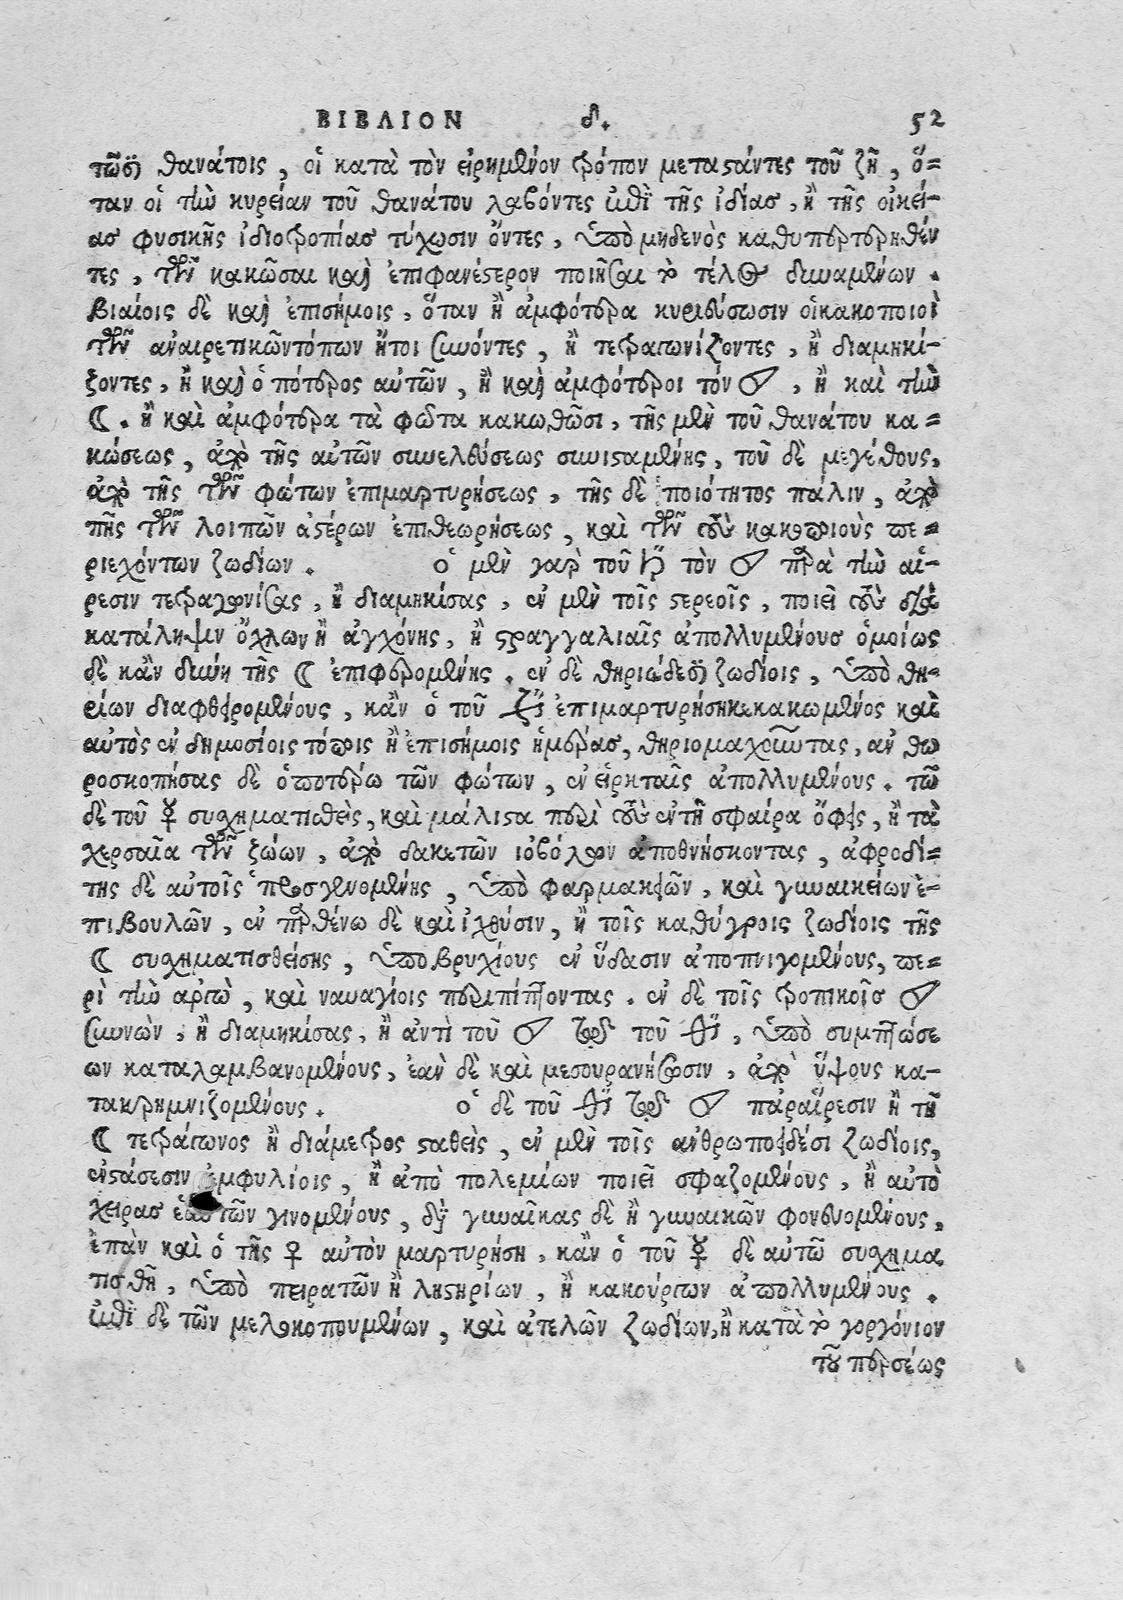 ΒΙΒΛΙΟΝ δ. 52
τῶσι θανάτοις, οἱ κατὰ τὸν εἰρημένον τρόπον μεταστάντες τοῦ ζῆν, ὅ=
ταν οἱ τὴν κυρείαν τοῦ θανάτου λαβόντες ἐπὶ τῆς ἰδίας, ἢ τῆς οἰκεί-
ας φυσικῆς ἰδιοτροπίας τύχωσιν ὄντες, ὑπὸ μηδενὸς καθυπερτερηθέν
τες, τῶν κακῶσαι καὶ ἐπιφανέστερον ποιῆσαι τὸ τέλος δυναμένων.
βιαίοις δὲ καὶ ἐπισήμοις, ὅταν ἢ ἀμφότερα κυριεύσωσιν οἱ κακοποιοὶ
τῶν ἀναιρετικῶν τόπων ἤτοι συνόντες, ἢ τετραγωνίζοντες, ἢ διαμηκί-
ζοντες, ἢ καὶ ὁ πότερος αὐτῶν, ἢ καὶ ἀμφότεροι τὸν ☉, ἢ καὶ τὴν
☾. ἢ καὶ ἀμφότερα τὰ φῶτα κακωθῶσι, τῆς μὲν τοῦ θανάτου κα=
κώσεως, ἀπὸ τῆς αὐτῶν συνελεύσεως συνισταμένης, τοῦ δὲ μεγέθους,
ἀπὸ τῆς τῶν φώτων ἐπιμαρτυρήσεως, τῆς δὲ ποιότητος πάλιν, ἀπὸ
τῆς τῶν λοιπῶν ἀστέρων ἐπιθεωρήσεως, καὶ τῶν τοὺς κακοποιοὺς πε=
ριεχόντων ζωδίων. ὁ μὲν γὰρ τοῦ ♄ τὸν ☉ παρὰ τὴν αἵ-
ρεσιν τετραγωνίσας, ἢ διαμηκίσας, ἐν μὲν τοῖς στερεοῖς, ποιεῖ τοὺς διὰ
κατάληψιν ὄχλων ἢ ἀγχόνης, ἢ στραγγαλιαῖς ἀπολλυμένους ὁμοίως
δὲ κἂν δύνῃ τῆς ☾ ἐπιφερομένης. ἐν δὲ θηριώδεσι ζωδίοις, ὑπὸ θη-
ρίων διαφθειρομένους, κἂν ὁ τοῦ ♃ ἐπιμαρτυρήσῃ κεκακωμένος καὶ
αὐτὸς ἐν δημοσίοις τόποις ἢ ἐπισήμοις ἡμέρας, θηριομαχοῦντας, ἀνθω
ροσκοπήσας δὲ ὁποτέρω τῶν φώτων, ἐν εἱρκταῖς ἀπολλυμένους. τῷ
δὲ τοῦ ☿ συσχηματισθεὶς, καὶ μάλιστα περὶ τοὺς ἐν τῇ σφαίρα ὄφεις, ἢ τὰ
χερσαῖα τῶν ζώων, ἀπὸ δακετῶν ἰοβόλων ἀποθνήσκοντας, ἀφροδί=
της δὲ αὐτοῖς προσγενομένης, ὑπὸ φαρμακειῶν, καὶ γυναικείων ἐ-
πιβουλῶν, ἐν παρθένω δὲ καὶ ἰχθύσιν, ἢ τοῖς καθύγροις ζωδίοις τῆς
☾ συσχηματισθείσης, ὑποβρυχίους ἐν ὕδασιν ἀποπνιγομένους, πε=
ρὶ τὴν ἀργὼ, καὶ ναυαγίοις περιπίπτοντας. ἐν δὲ τοῖς τροπικοῖς ☉
συνὼν, ἢ διαμηκίσας, ἢ ἀντὶ τοῦ ☉ τῷ τοῦ ♂, ὑπὸ συμπτώσε
ων καταλαμβανομένους, ἐὰν δὲ καὶ μεσουρανήσωσιν, ἀπὸ ὕψους κα-
τακρημνιζομένους. ὁ δὲ τοῦ ♂ τῷ ☉ παρ αἵρεσιν ἢ τῇ
☾ τετράγωνος ἢ διάμετρος σταθεὶς, ἐν μὲν τοῖς ἀνθρωποειδέσι ζωδίοις,
ἐν στάσεσιν ἐμφυλίοις, ἢ ἀπὸ πολεμίων ποιεῖ σφαζομένους, ἢ αὐτὸ
χειρας ἑαυτῶν γινομένους, διὰ γυναῖκας δὲ ἢ γυναικῶν φονευομένους,
ἐπὰν καὶ ὁ τῆς ♀ αὐτὸν μαρτυρήση, κἂν ὁ τοῦ ☿ δὲ αὐτῷ συσχημα
τισθῇ, ὑπὸ πειρατῶν ἢ ληστηρίων, ἢ κακούργων ἀπολλυμένους.
ἐπὶ δὲ τῶν μελοκοπουμένων, καὶ ἀτελῶν ζωδίων, ἢ κατὰ τὸ γοργόνιον
τοῦ περσέως